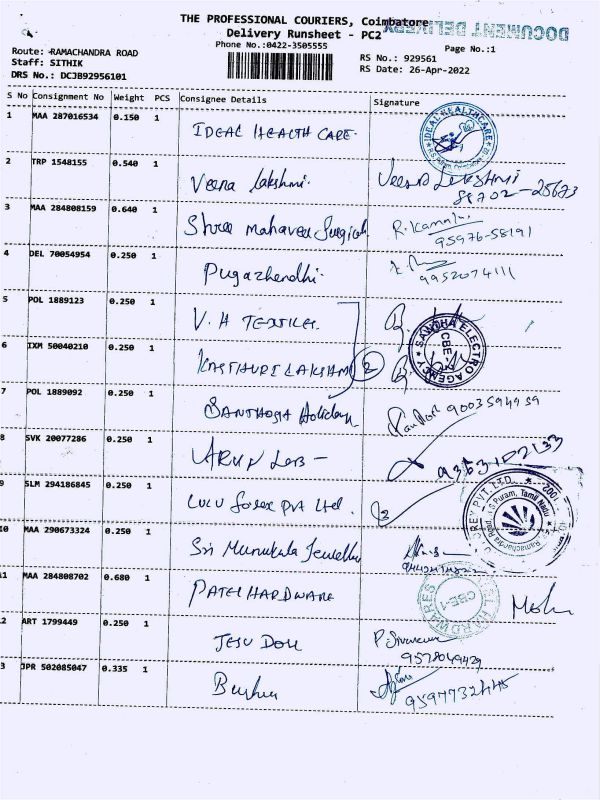 THE PROFESSIONAL COURIERS, Coimbatore
DOCUMENT DELIVERY
Delivery Runsheet - PC2
Phone No.:0422-3505555
Page No.:1
Route: RAMACHANDRA ROAD
Staff: SITHIK
DRS No.: DCJB92956101
RS No.: 929561
RS Date: 26-Apr-2022
S No Consignment No Weight PCS Consignee Details Signature
1 MAA 287016534 0.150 1 IDEAL HEALTH CARE. IDEAL HEALTHCARE
2 TRP 1548155 0.540 1 Veena Lakshmi. Veena Lekshmi
88702-25673
3 MAA 284808159 0.640 1 Shree mahaveer Surgical R. Kamal
95976-58191
4 DEL 70054954 0.250 1 Pugazhendhi.
9952074111
5 POL 1889123 0.250 1 V. H TEXTILES.
6 IXM 50040210 0.250 1 KASTHURI LAKSHMI 2 SANDHA ELECTRO AGENCY CBE
7 POL 1889092 0.250 1 SANTHOSH Holidays 9003594959
8 SVK 20077286 0.250 1 ARUN Lab -
9 SLM 294186845 0.250 1 LULU forex Pvt Ltd. 2 PVT LTD. R S Puram, Tamil Nadu Ramachandra Road
10 MAA 290673324 0.250 1 Sri Munukula Jewellry
11 MAA 284808702 0.680 1 PATEL HARDWARE HARDWARES CBE-1
12 ART 1799449 0.250 1 JESU DOLL P. Sivakumar
9578049429
13 JPR 502085047 0.335 1